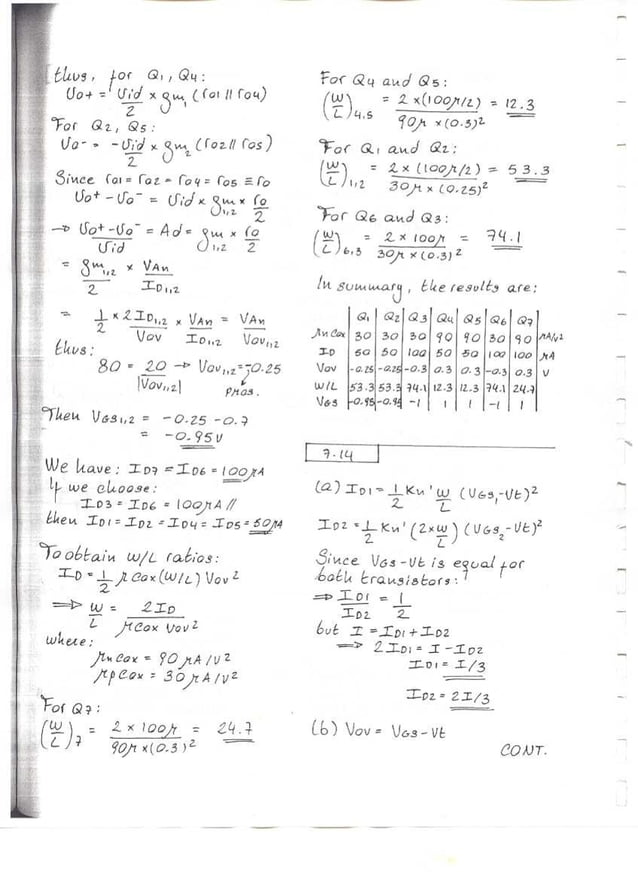 thus, for Q1, Q4:
Vo+ = Vid/2 × gm1 (ro1 // ro4)
For Q2, Q5:
Vo- = -Vid/2 × gm2 (ro2 // ro5)
Since ro1 = ro2 = ro4 = ro5 ≡ ro
Vo+ - Vo- = Vid × gm1,2 × ro/2
→ Vo+ - Vo-/Vid = Ad = gm1,2 × ro/2
= gm1,2/2 × VAn/ID1,2
= 1/2 × 2ID1,2/Vov × VAn/ID1,2 = VAn/Vov1,2
thus:
80 = 20/|Vov1,2| → Vov1,2 = -0.25
PMOS.
Then VGS1,2 = -0.25 - 0.7
= -0.95V
We have: ID7 = ID6 = 100μA
If we choose:
ID3 = ID6 = 100μA //
then ID1 = ID2 = ID4 = ID5 = 50μA
To obtain W/L ratios:
ID = 1/2 μCox (W/L) Vov²
⇒ W/L = 2ID/μCox Vov²
where:
μnCox = 90μA/V²
μpCox = 30μA/V²
For Q7:
(W/L)7 = 2 × 100μ/90μ × (0.3)² = 24.7
For Q4 and Q5:
(W/L)4,5 = 2 × (100μ/2)/90μ × (0.3)² = 12.3
For Q1 and Q2:
(W/L)1,2 = 2 × (100μ/2)/30μ × (0.25)² = 53.3
For Q6 and Q3:
(W/L)6,3 = 2 × 100μ/30μ × (0.3)² = 74.1
In summary, the results are:
Q1 Q2 Q3 Q4 Q5 Q6 Q7
μnCox 30 30 30 90 90 30 90 μA/V²
ID 50 50 100 50 50 100 100 μA
Vov -0.25 -0.25 -0.3 0.3 0.3 -0.3 0.3 V
W/L 53.3 53.3 74.1 12.3 12.3 74.1 24.7
VGS -0.95 -0.95 -1 1 1 -1 1
7.14
(a) ID1 = 1/2 Kn' W/L (VGS1 - Vt)²
ID2 = 1/2 Kn' (2×W/L) (VGS2 - Vt)²
Since VGS - Vt is equal for
both transistors:
⇒ ID1/ID2 = 1/2
but I = ID1 + ID2
⇒ 2ID1 = I - ID2
ID1 = I/3
ID2 = 2I/3
(b) VOV = VGS - Vt
CONT.